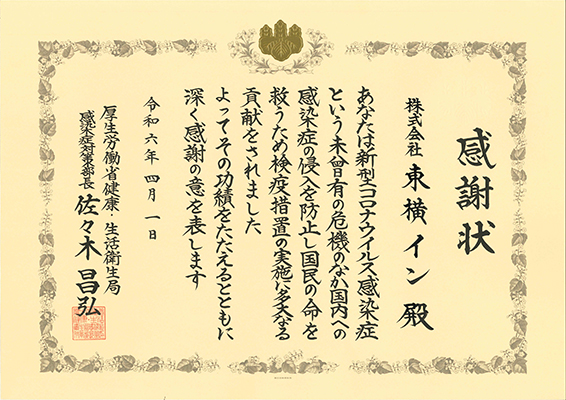 感謝状
株式会社 東横イン 殿
あなたは新型コロナウイルス感染症
という未曾有の危機のなか国内への
感染症の侵入を防止し国民の命を
救うため検疫措置の実施に多大なる
貢献をされました
よってその功績をたたえるとともに
深く感謝の意を表します
令和六年四月一日
厚生労働省健康・生活衛生局
感染症対策部長 佐々木 昌弘